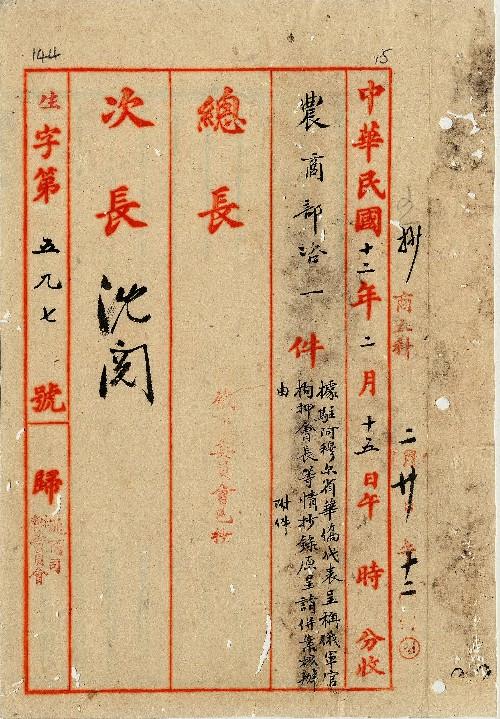 144
15
抄
商五科
二月廿
十二
中華民國十二年二月十五日午 時 分收
農商部咨一件
據駐阿穆尔省華僑代表呈稱俄軍官
拘押會長等情抄錄原呈請併案核辦
由
附件
總長
次長
沈阅
字第五九七號
歸